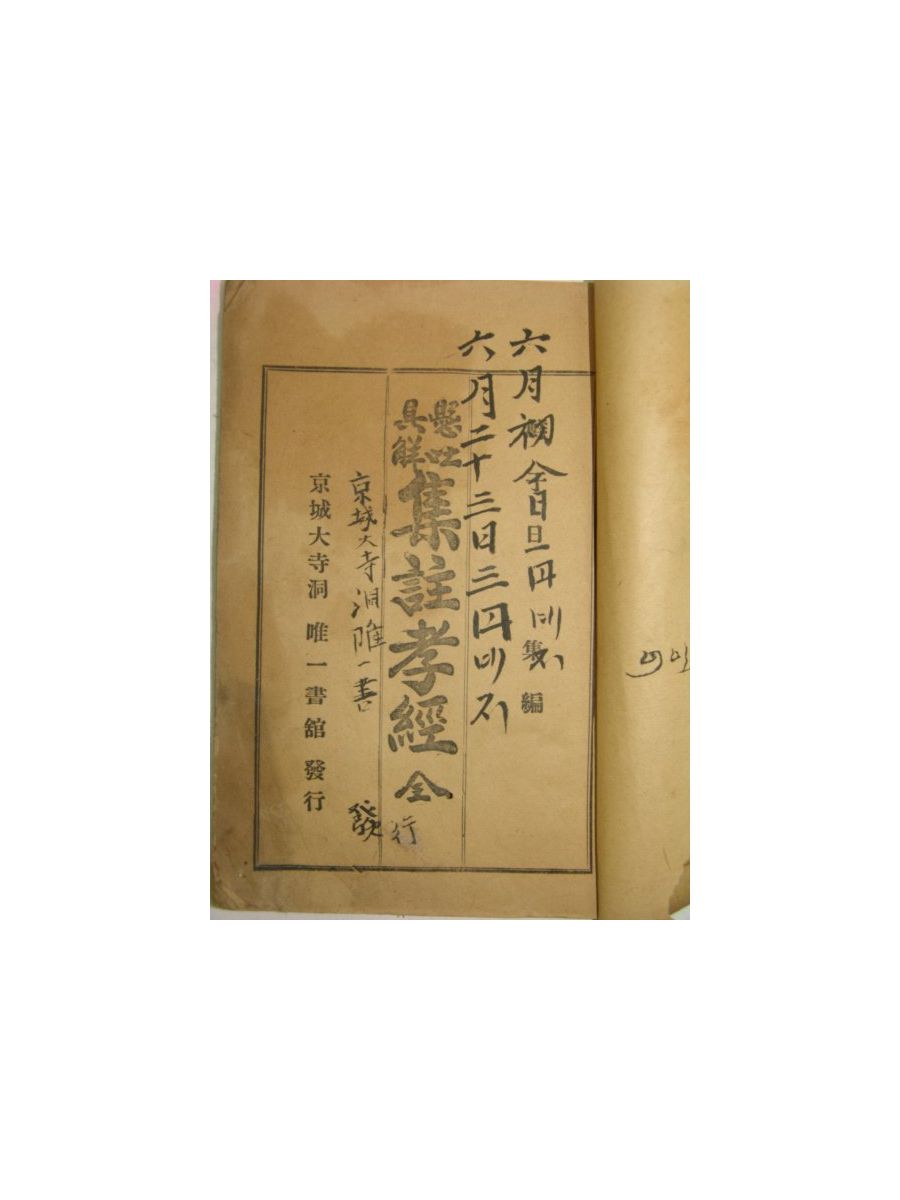 六月初
六月二十三日三円
懸吐
具解
集註孝經 全
集 編
京城大寺洞唯一書
發行
京城大寺洞 唯一書舘 發行